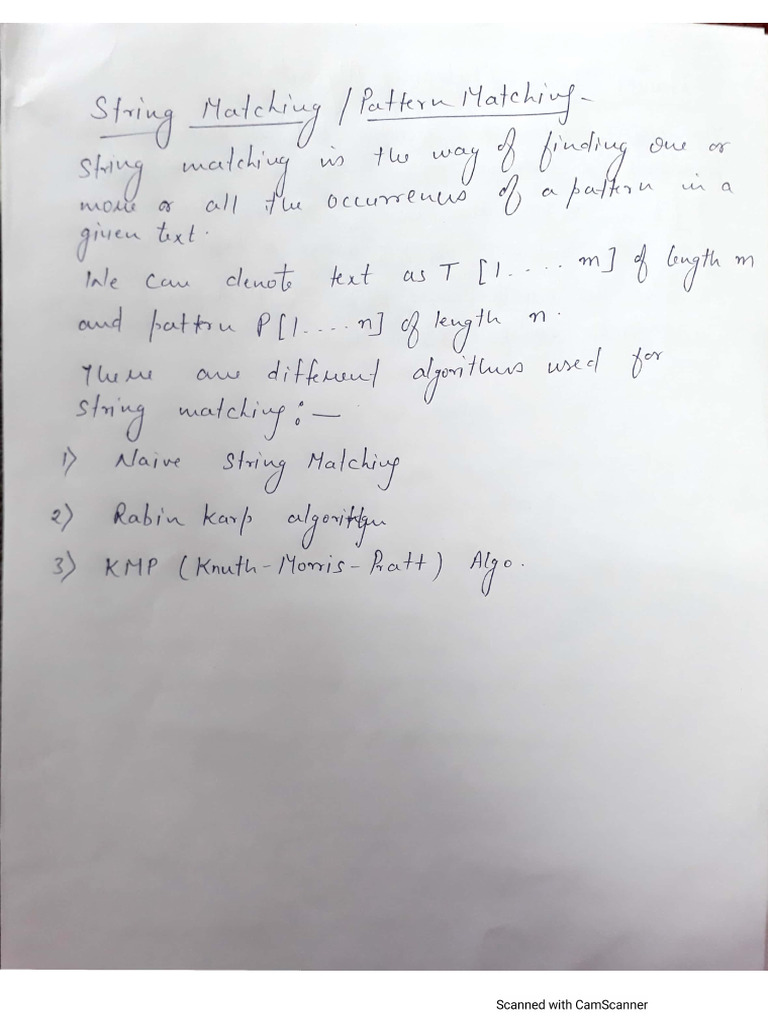 String Matching / Pattern Matching -
String matching is the way of finding one or
more or all the occurrences of a pattern in a
given text.
We can denote text as T [1..... m] of length m
and pattern P[1....n] of length n.
There are different algorithms used for
String matching: —
1) Naive String Matching
2) Rabin Karp algorithm
3) KMP (Knuth-Morris-Pratt) Algo.
Scanned with CamScanner